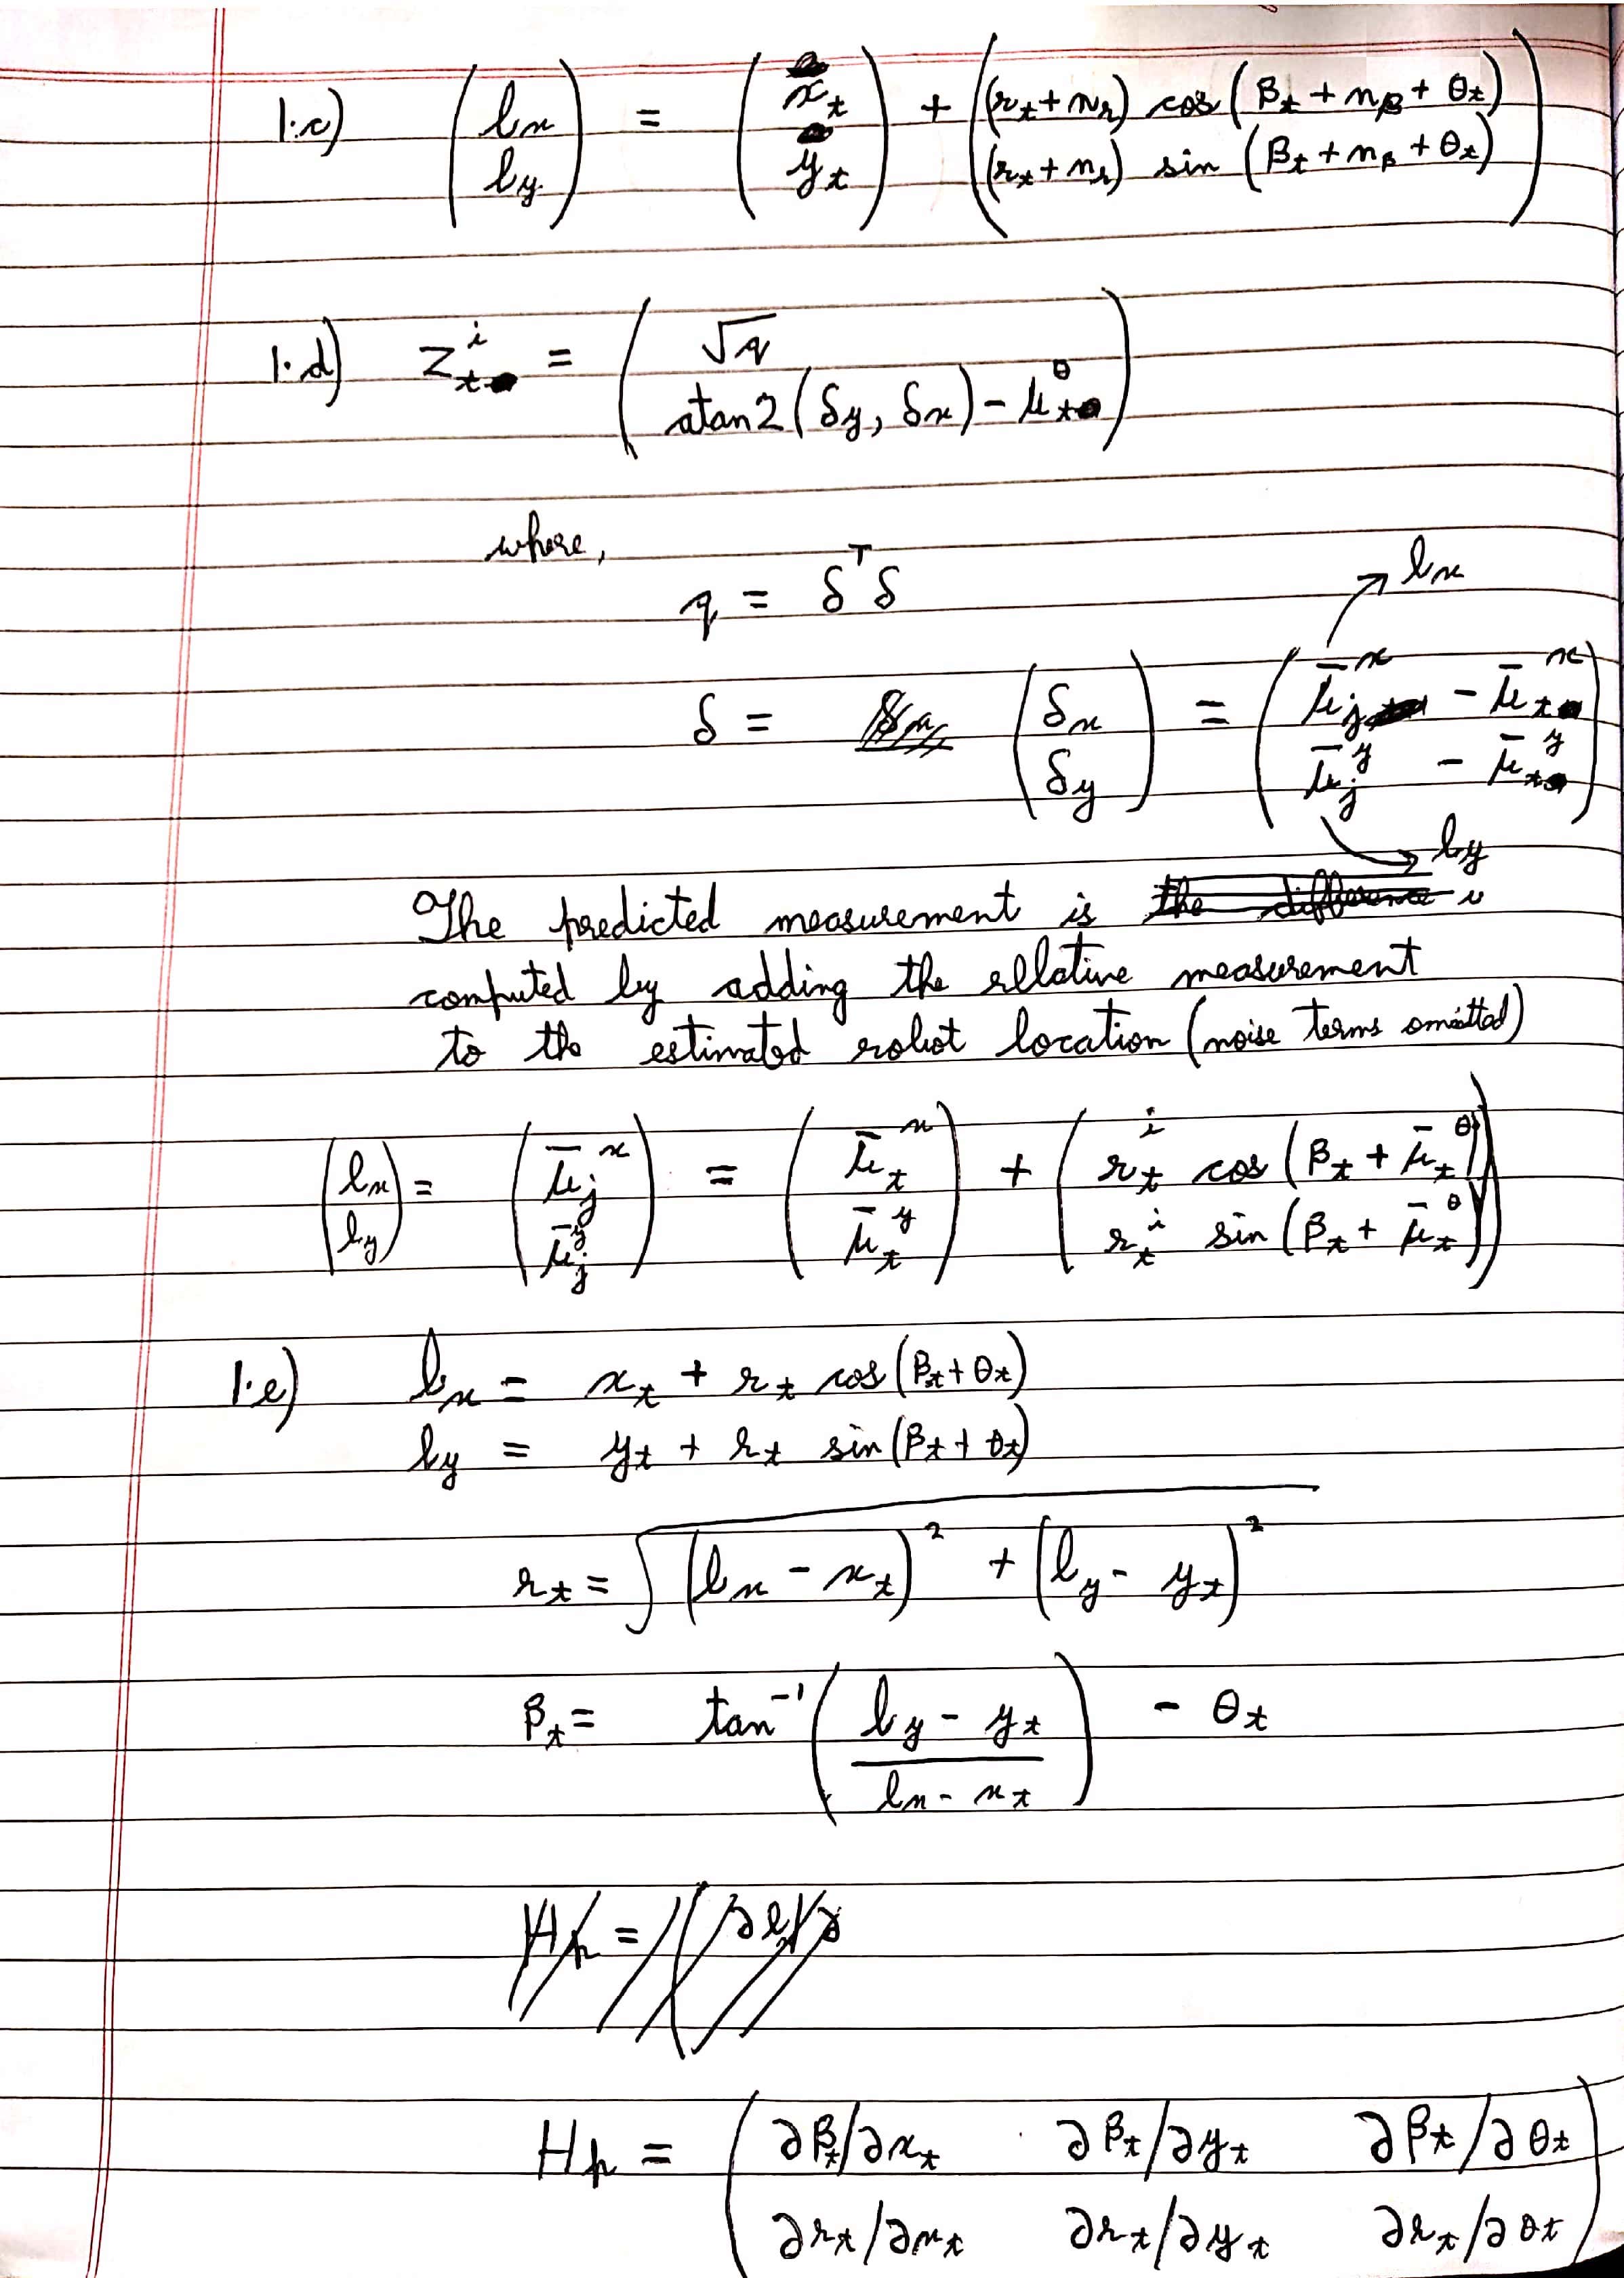 1.c) (l_x l_y) = (x_t y_t) + ((r_t + n_r) cos (β_t + n_β + θ_t) (r_t + n_r) sin (β_t + n_β + θ_t))
1.d) z_t^i = (√q atan2(δy, δx) - μ_t^θ)
where,
q = δ^T δ
→ l_x
δ = (δ_x δ_y) = (μ̄_j^x - μ̄_t^x μ̄_j^y - μ̄_t^y)
→ l_y
The predicted measurement is the difference is
computed by adding the rellative measurement
to the estimated robot location (noise terms omitted)
(l_x l_y) = (μ̄_j^x μ̄_j^y) = (μ̄_t^x μ̄_t^y) + (r_t^i cos (β_t + μ̄_t^θ) r_t^i sin (β_t + μ̄_t^θ))
1.e) l_x = x_t + r_t cos(β_t + θ_t)
l_y = y_t + r_t sin(β_t + θ_t)
r_t = √((l_x - x_t)^2 + (l_y - y_t)^2)
β_t = tan^-1 ((l_y - y_t)/(l_x - x_t)) - θ_t
H_p = (∂l/∂
H_p = (∂β_t/∂x_t ∂β_t/∂y_t ∂β_t/∂θ_t
∂r_t/∂x_t ∂r_t/∂y_t ∂r_t/∂θ_t)